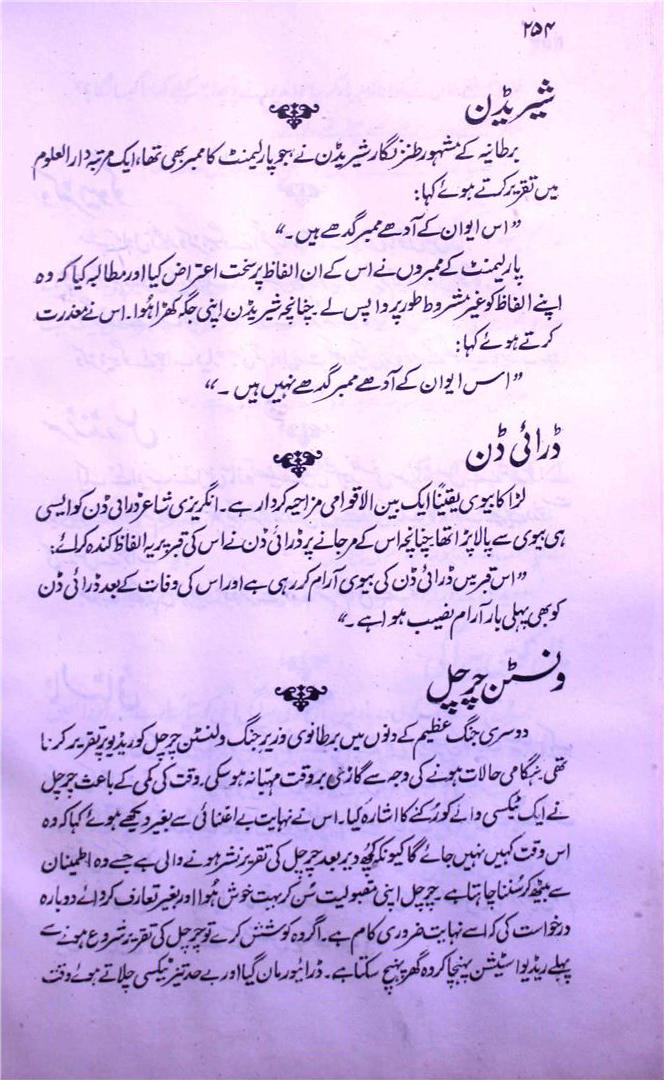 ۲۵۴
شیریڈن
برطانیہ کے مشہور طنز نگار شیریڈن نے جو پارلیمنٹ کا ممبر بھی تھا، ایک مرتبہ دارالعلوم
میں تقریر کرتے ہوئے کہا:
”اس ایوان کے آدھے ممبر گدھے ہیں۔“
پارلیمنٹ کے ممبروں نے اس کے ان الفاظ پر سخت اعتراض کیا اور مطالبہ کیا کہ وہ
اپنے الفاظ کو غیر مشروط طور پر واپس لے۔ چنانچہ شیریڈن اپنی جگہ کھڑا ہُوا۔ اس نے معذرت
کرتے ہوئے کہا:
”اس ایوان کے آدھے ممبر گدھے نہیں ہیں۔“
ڈرائی ڈن
لڑاکا بیوی یقیناً ایک بین الاقوامی مزاحیہ کردار ہے۔ انگریزی شاعر ڈرائی ڈن کو ایسی
ہی بیوی سے پالا پڑا تھا چنانچہ اس کے مر جانے پر ڈرائی ڈن نے اس کی قبر پر یہ الفاظ کندہ کرائے:
”اس قبر میں ڈرائی ڈن کی بیوی آرام کر رہی ہے اور اس کی وفات کے بعد ڈرائی ڈن
کو بھی پہلی بار آرام نصیب ہوا ہے۔“
ونسٹن چرچل
دوسری جنگ عظیم کے دنوں میں برطانوی وزیر جنگ ونسٹن چرچل کو ریڈیو پر تقریر کرنا
تھی۔ ہنگامی حالات ہونے کی وجہ سے گاڑی بروقت مہیا نہ ہو سکی۔ وقت کی کمی کے باعث چرچل
نے ایک ٹیکسی والے کو رُکنے کا اشارہ کیا۔ اس نے نہایت بے اعتنائی سے بغیر دیکھے ہوئے کہا کہ وہ
اس وقت کہیں نہیں جائے گا کیونکہ کچھ دیر بعد چرچل کی تقریر نشر ہونے والی ہے جسے وہ اطمینان
سے بیٹھ کر سُننا چاہتا ہے۔ چرچل اپنی مقبولیت سُن کر بہت خوش ہُوا اور بغیر تعارف کروائے دوبارہ
درخواست کی کہ اسے نہایت ضروری کام ہے۔ اگر وہ کوشش کرے تو چرچل کی تقریر شروع ہونے سے
پہلے ریڈیو اسٹیشن پہنچا کر وہ گھر پہنچ سکتا ہے۔ ڈرائیور مان گیا اور بے حد تیز ٹیکسی چلاتے ہوئے وقت